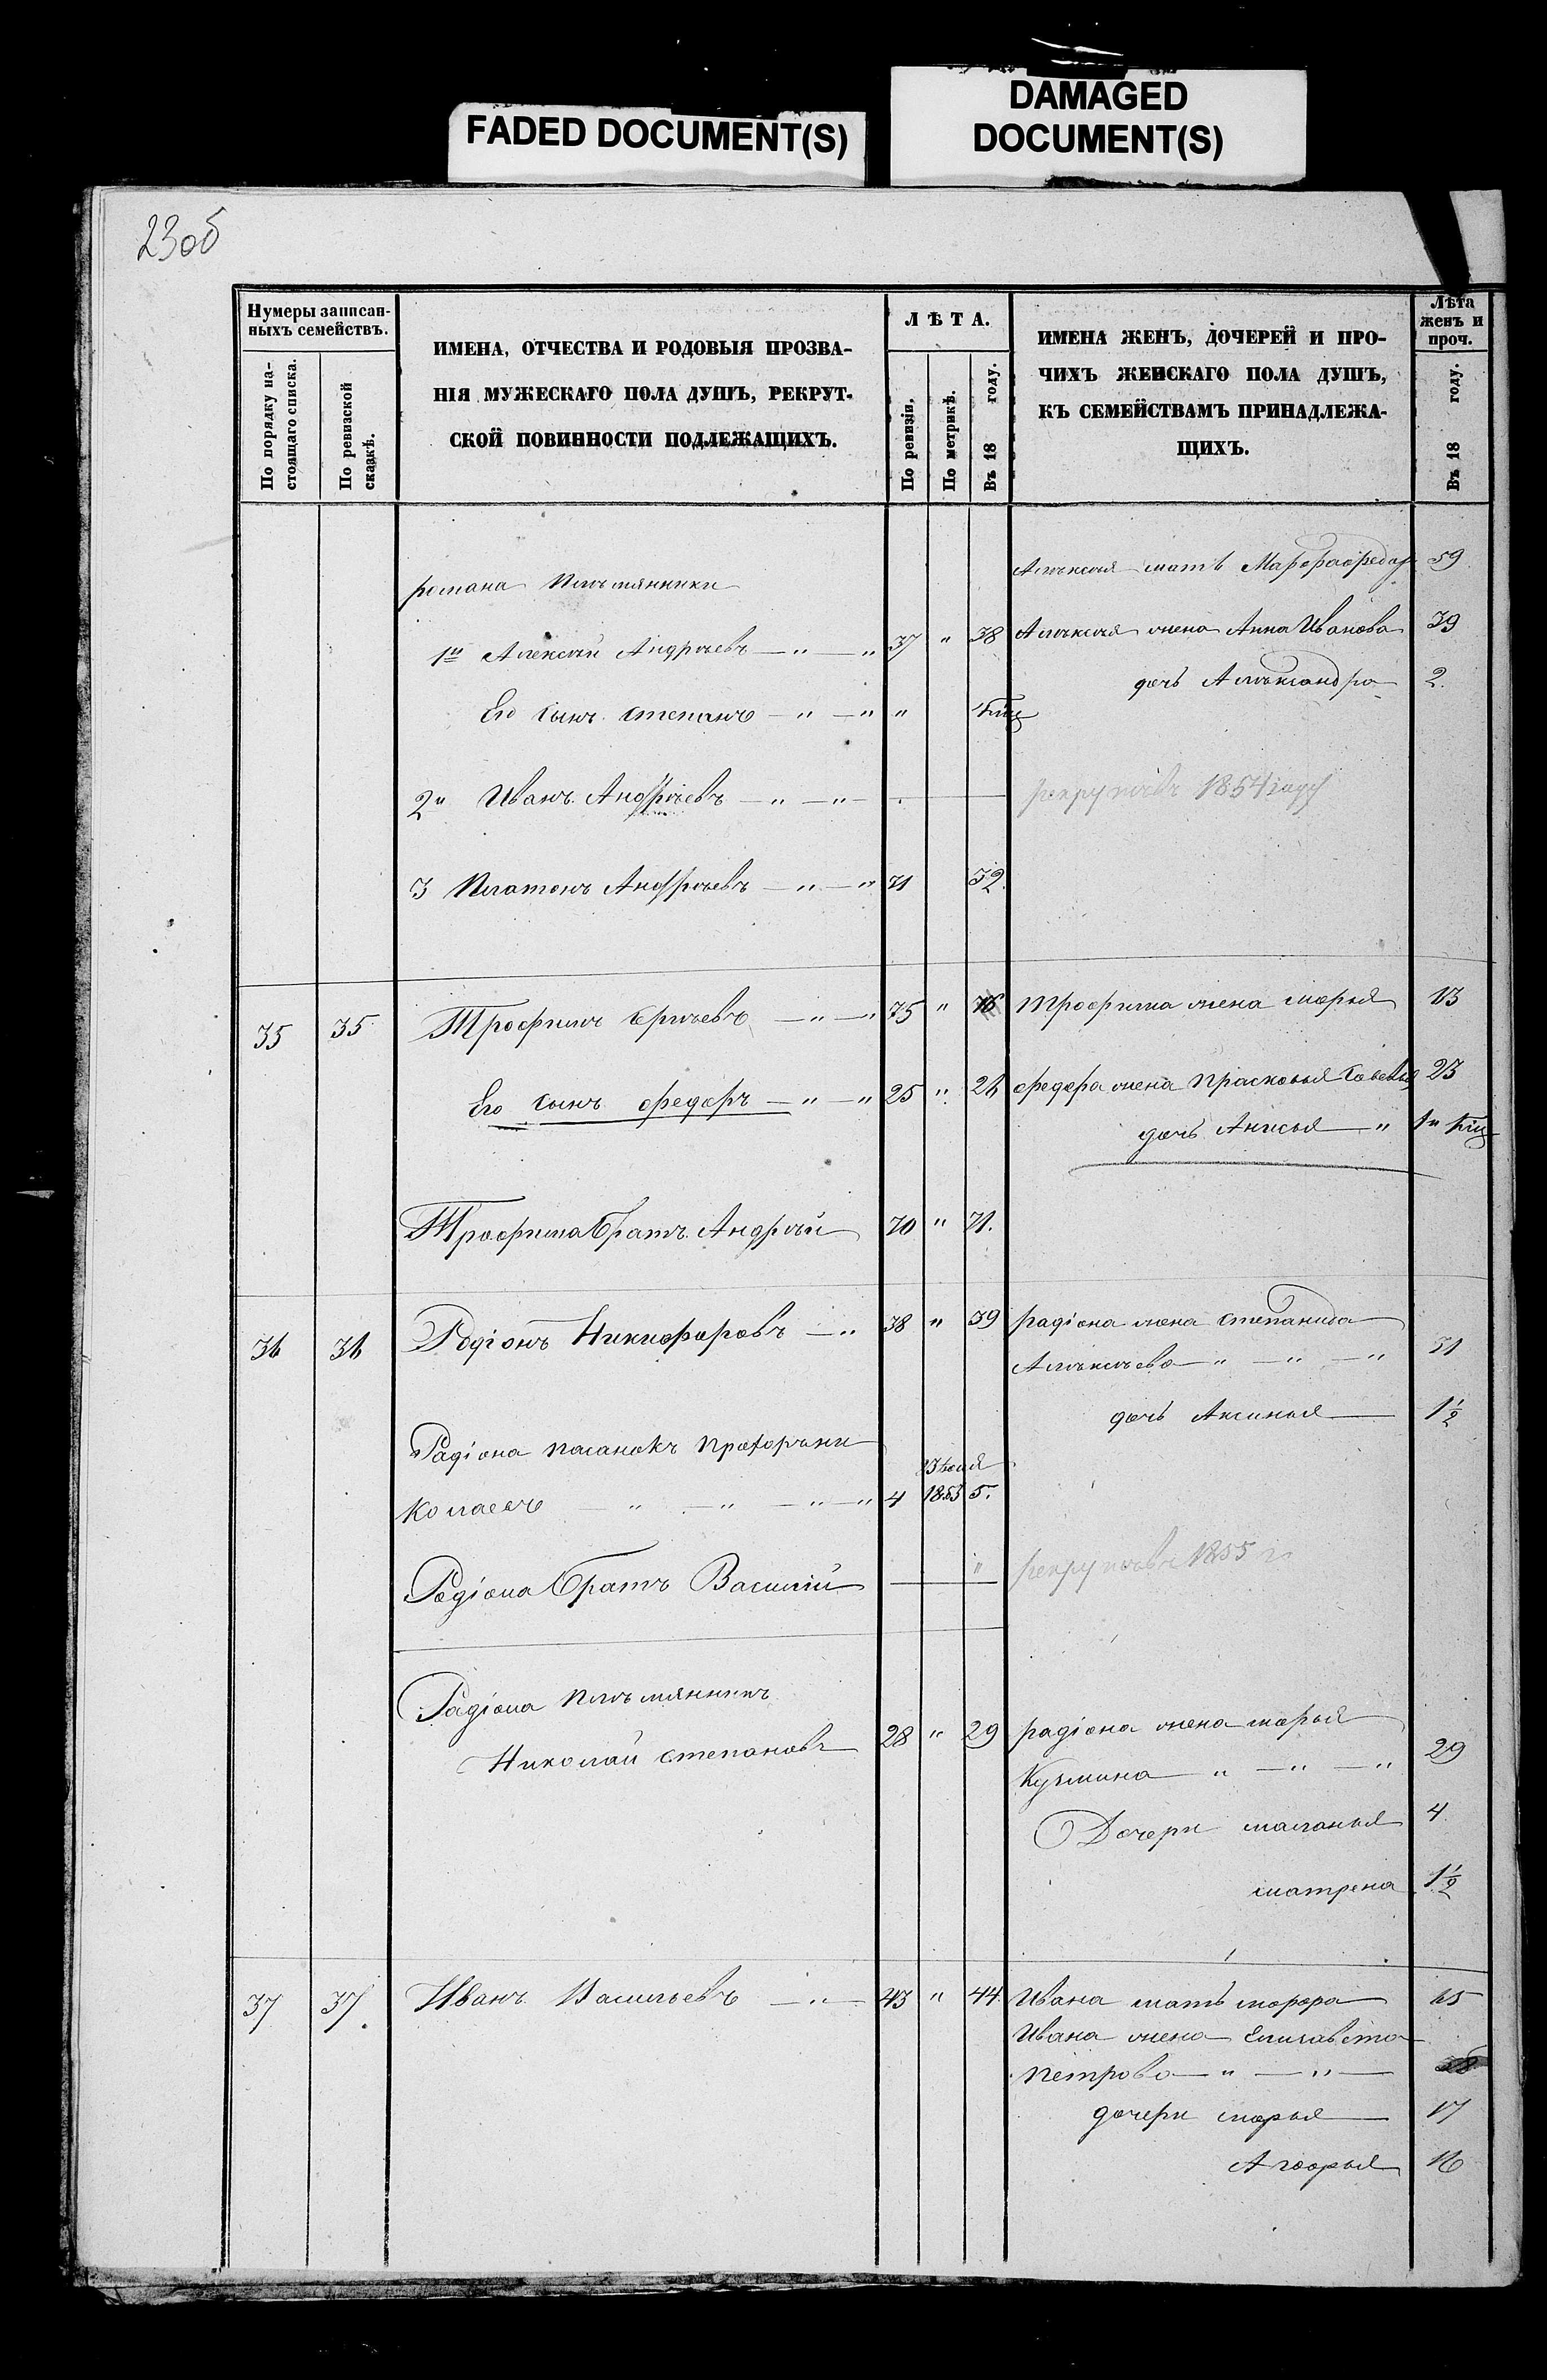 FADED DOCUMENT(S)
DAMAGED
DOCUMENT(S)
23об
Нумеры записан-
ныхъ семействъ.
По порядку на-
стоящаго списка.
По ревизской
сказкѣ.
ИМЕНА, ОТЧЕСТВА И РОДОВЫЯ ПРОЗВА-
НІЯ МУЖЕСКАГО ПОЛА ДУШЪ, РЕКРУТ-
СКОЙ ПОВИННОСТИ ПОДЛЕЖАЩИХЪ.
ЛѢТА.
По ревизіи.
По метрикѣ.
Въ 18 году.
ИМЕНА ЖЕНЪ, ДОЧЕРЕЙ И ПРО-
ЧИХЪ ЖЕНСКАГО ПОЛА ДУШЪ,
КЪ СЕМЕЙСТВАМЪ ПРИНАДЛЕЖА-
ЩИХЪ.
Лѣта
женъ и
проч.
Въ 18 году.
Алѣксѣя мать Марфа 59
романа Плѣмянники
1й Алексѣй Андрѣевъ — " — " 37 " 38 Алѣксѣя жена Анна Иванова 39
дочь Алѣксандра 2.
Его сынъ степанъ — " — " "
2й Иванъ Андрѣевъ — " — " рекрутъ въ 1854 году
3 Платонъ Андрѣевъ — " — " 31 32.
35 35 Трофимъ Ергѣевъ — " — " 75 " 76 Трофима жена марья 73
Его сынъ федоръ — " — " 25 " 26 федора жена Прасковья 23
дочь Анисья — "
Трофима братъ Андрѣй 70 " 71.
36 36 Родіонъ Никифоровъ — " 38 " 39 радіона жена степанида
Алѣксѣева — " — " — " 31
дочь Аксинья 1½
Радіона пасанокъ
— " — " — " — " 4 1853 5.
Радіона братъ Василій " рекрутъ въ 1855 г.
Радіона Плѣмянникъ
Николай степановъ 28 " 29 радіона жена марья
Кузмина — " — " — " 29
Дочери маланья 4
матрена 1½
37 37. Иванъ Васильевъ — " — 43 " 44. Ивана мать марфа 65
Ивана жена Елисавета
Петрова — " — " —
дочери марья 17
16